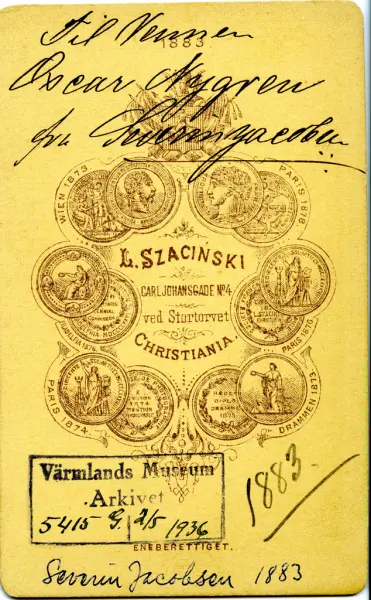 Til Vennen
1883.
Oscar Nygren
fra Severin Jacobsen
WIEN 1873
PARIS 1878
L. SZACIŃSKI
CARL JOHANSGADE No 4.
ved Stortorvet
CHRISTIANIA.
PARIS 1875
PARIS 1874.
DRAMMEN 1873
Värmlands Museum
Arkivet
5415 G. 2/5 1936
1883
ENEBERETTIGET.
Severin Jacobsen 1883